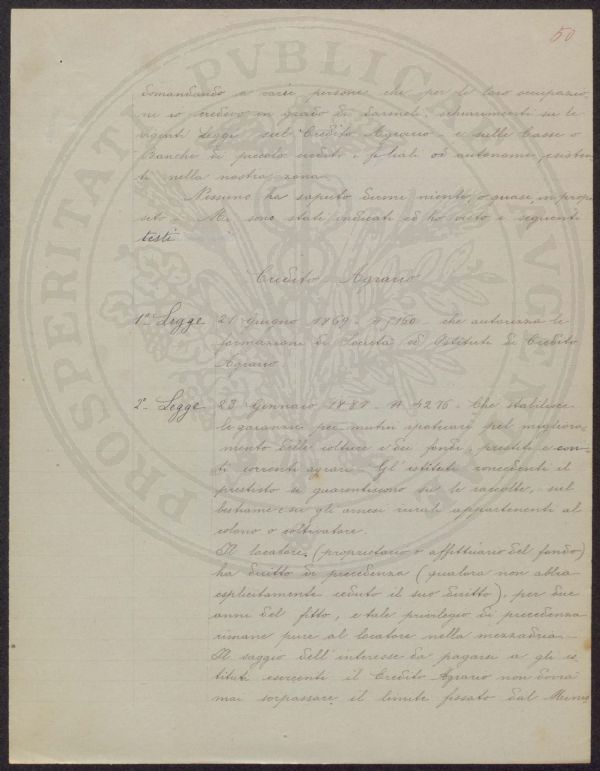 50
domandando a varie persone che per le loro occupazio
ni io credevo in grado di darmeli, schiarimenti su le
vigenti Leggi sul Credito Agrario e sulle Casse o
Banche di piccolo credito, filiali od autonome, esisten
ti nella nostra zona.
Nessuno ha saputo dirmi niente, o quasi, in propo
sito. Mi sono stati indicati ed ho visto i seguenti
testi
Credito Agrario
1a Legge 21 Giugno 1869. N 5160. che autorizza la
formazione di Società ed Istituti di Credito
Agrario
2a Legge 23 Gennaio 1887. N 4276. Che stabilisce
le garanzie per mutui ipotecari pel migliora
mento delle colture e dei fondi, prestiti e con
ti correnti agrari. Gl'istituti concedenti il
prestito si guarentiscono su le raccolte, sul
bestiame e su gli arnesi rurali appartenenti al
colono o coltivatore.
Il locatore (proprietario o affittuario del fondo)
ha diritto di precedenza (qualora non abbia
esplicitamente ceduto il suo diritto), per due
anni del fitto, e tale privilegio di precedenza
rimane pure al locatore nella mezzadria.
Il saggio dell'interesse da pagarsi a gli is
tituti esercenti il Credito Agrario non dovrà
mai sorpassare il limite fissato dal Minis
PROSPERITATI PVBLICAE